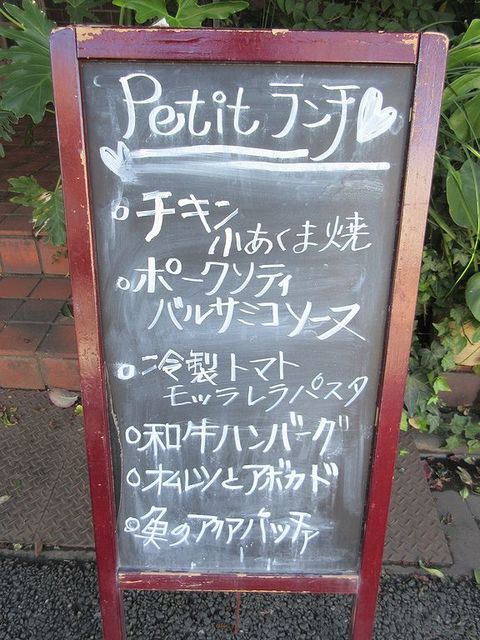 Petit ランチ
○チキン
小あくま焼
○ポークソティ
バルサミコソース
○冷製トマト
モッツァレラパスタ
○和牛ハンバーグ
○オムレツとアボカド
○魚のアクアパッツァ